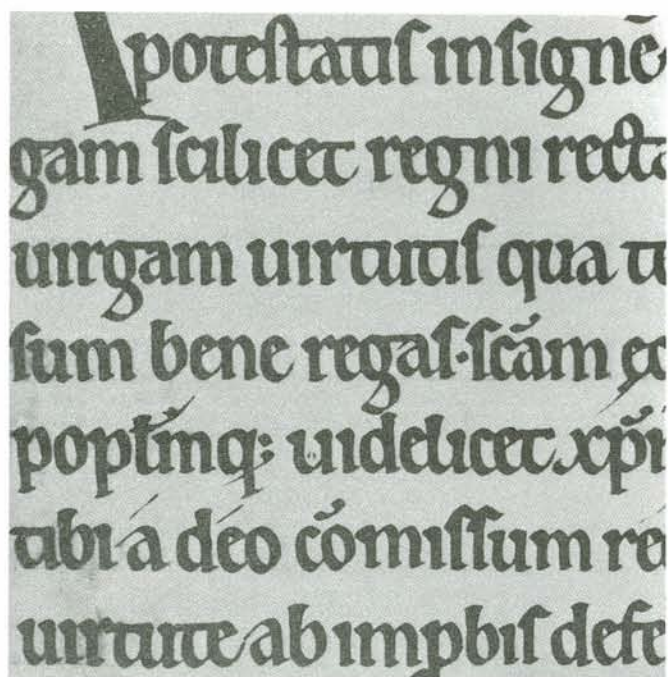 A potestatiſ inſignē
gam ſcilicet regni recta
uirgam uirtutiſ qua te
ſum bene regaſ·ſcām ec
poplm̄q; uidelicet xp̄i
tibi á deo cōmiſſum re
uirtute ab imp̄biſ defe